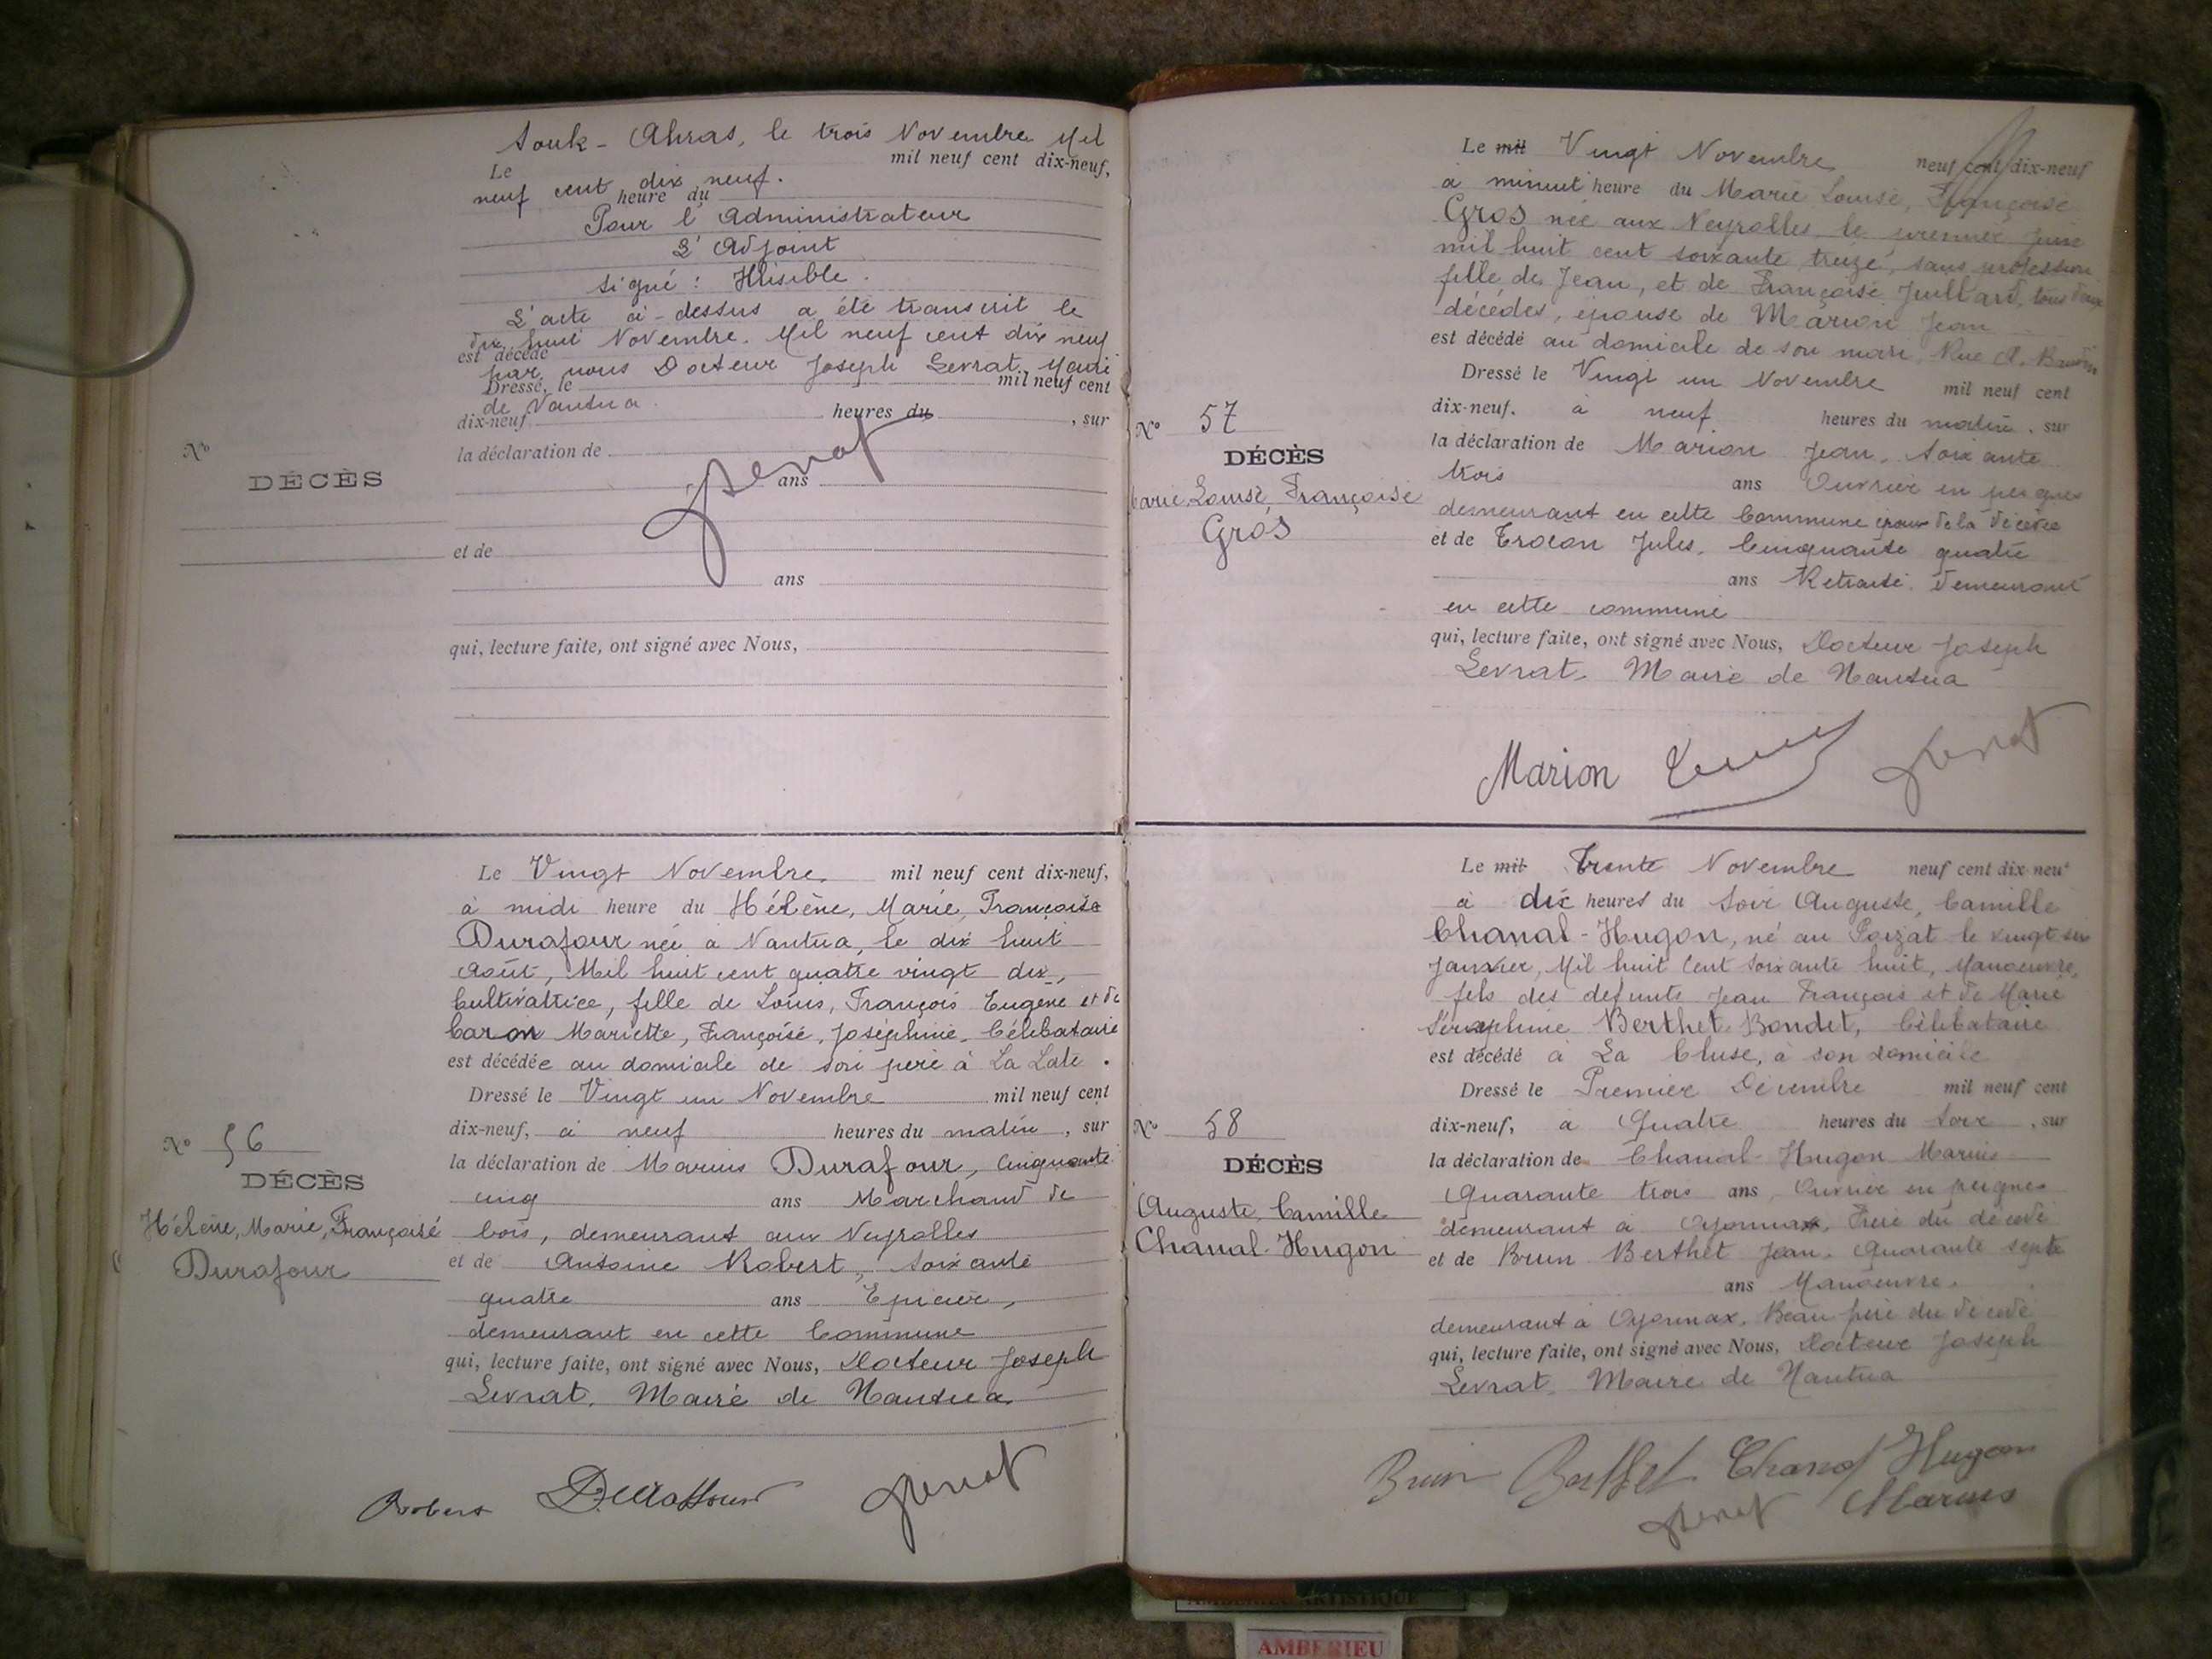 Souk-Ahras, le trois Novembre Mil
Le mil neuf cent dix-neuf,
neuf cent dix neuf.
heure du
Pour l'Administrateur
L'Adjoint
signé : Illisible.
L'acte ci-dessus a été transcrit le
dix huit Novembre. Mil neuf cent dix neuf
est décédé
par nous Docteur Joseph Levrat. Maire
Dressé, le mil neuf cent
de Nantua.
dix-neuf heures du , sur
la déclaration de
ans
et de
ans
qui, lecture faite, ont signé avec Nous,
No
DÉCÈS
Le Vingt Novembre, mil neuf cent dix-neuf,
à midi heure du Hélène, Marie, Françoise
Durafour née à Nantua, le dix huit
Août, Mil huit cent quatre vingt dix,
Cultivatrice, fille de Louis, François Eugène et de
Caron Mariette, Françoise, Joséphine. Célibataire
est décédée au domicile de son père à La Late.
Dressé le Vingt un Novembre mil neuf cent
dix-neuf, à neuf heures du matin, sur
la déclaration de Marius Durafour, Cinquante
cinq ans Marchand de
bois, demeurant aux Neyrolles
et de Antoine Robert, Soixante
quatre ans Epicier,
demeurant en cette Commune
qui, lecture faite, ont signé avec Nous, Docteur Joseph
Levrat. Maire de Nantua.
No 56
DÉCÈS
Hélène, Marie, Françoise
Durafour
Robert Durafour
Le mil Vingt Novembre neuf cent dix-neuf
à minuit heure du Marie Louise, Françoise
Gros née aux Neyrolles, le premier Juin
mil huit cent soixante treize, sans profession
fille de Jean, et de Françoise Juillard, tous deux
décédés, épouse de Marion Jean
est décédé au domicile de son mari, Rue A. Baudin
Dressé le Vingt un Novembre mil neuf cent
dix-neuf. à neuf heures du matin, sur
la déclaration de Marion Jean, Soixante
trois ans Ouvrier en peignes
demeurant en cette Commune époux de la décédée
et de Trocon Jules, Cinquante quatre
ans Retraité. demeurant
en cette commune
qui, lecture faite, ont signé avec Nous, Docteur Joseph
Levrat. Maire de Nantua
No 57
DÉCÈS
Marie, Louise, Françoise
Gros
Marion
Le mil Trente Novembre neuf cent dix neuf
à dix heures du soir Auguste, Camille
Chanal-Hugon, né au Poizat le vingt six
Janvier, Mil huit Cent Soixante huit, Manoeuvre,
fils des defunts Jean François et de Marie
Séraphine Berthet-Bondet, Célibataire
est décédé à La Cluse, à son domicile
Dressé le Premier Décembre mil neuf cent
dix-neuf, à Quatre heures du Soir, sur
la déclaration de Chanal-Hugon Marius
Quarante trois ans, Ouvrier en peignes
demeurant à Oyonnax, Frère du décédé
et de Brun Berthet Jean. Quarante sept
ans Manoeuvre.
demeurant à Oyonnax, Beau frère du décédé
qui, lecture faite, ont signé avec Nous, Docteur Joseph
Levrat. Maire de Nantua
No 58
DÉCÈS
Auguste, Camille
Chanal-Hugon
Brun Berthet Chanal Hugon
Marius
ARTISTIQUE
AMBERIEU